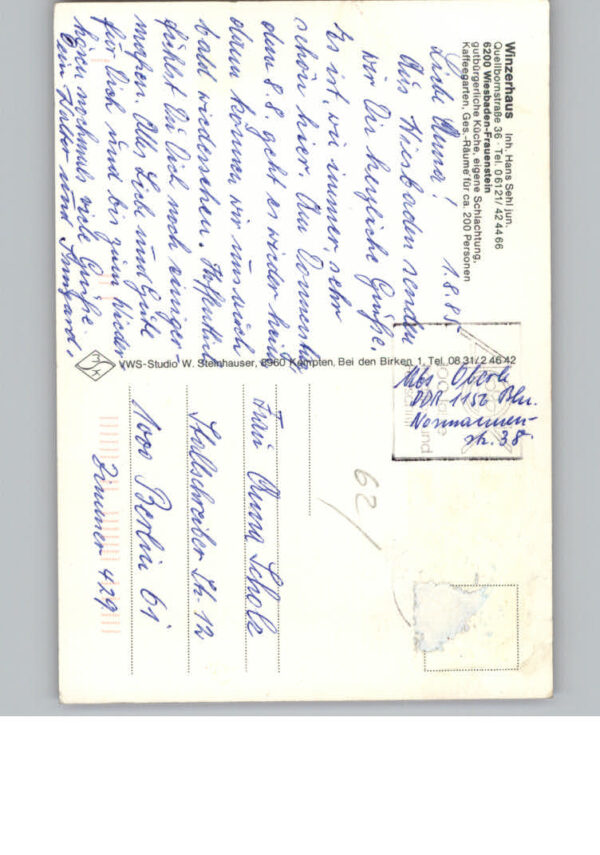 Winzerhaus Inh. Hans Sehl jun.
Quellbornstraße 36 · Tel. 06121/42 44 66
6200 Wiesbaden-Frauenstein
gutbürgerliche Küche, eigene Schlachtung,
Kaffeegarten, Ges.-Räume für ca. 200 Personen
1.8.85
Liebe Anna!
Aus Wiesbaden senden
wir Dir herzliche Grüße.
Es ist, wie immer, sehr
schön hier. Am Donnerstag
dem 8.8. geht es wieder heim
dann können wir uns auch
bald wiedersehen. Hoffentlich
fühlst Du Dich noch einiger-
maßen. Alles Liebe und Gute
für Dich und bis zum Wieder-
sehen nochmals viele Grüße
Dein Walter und Irmgard.
VWS-Studio W. Steinhauser, 8960 Kempten, Bei den Birken 1, Tel. 08 31/2 46 42
Abs. Oberle
DDR 1156 Bln.
Normannen-
str. 38
62/
Frau Anna Scholz
Stallschreiber Str. 12
1000 Berlin 61
Zimmer 429